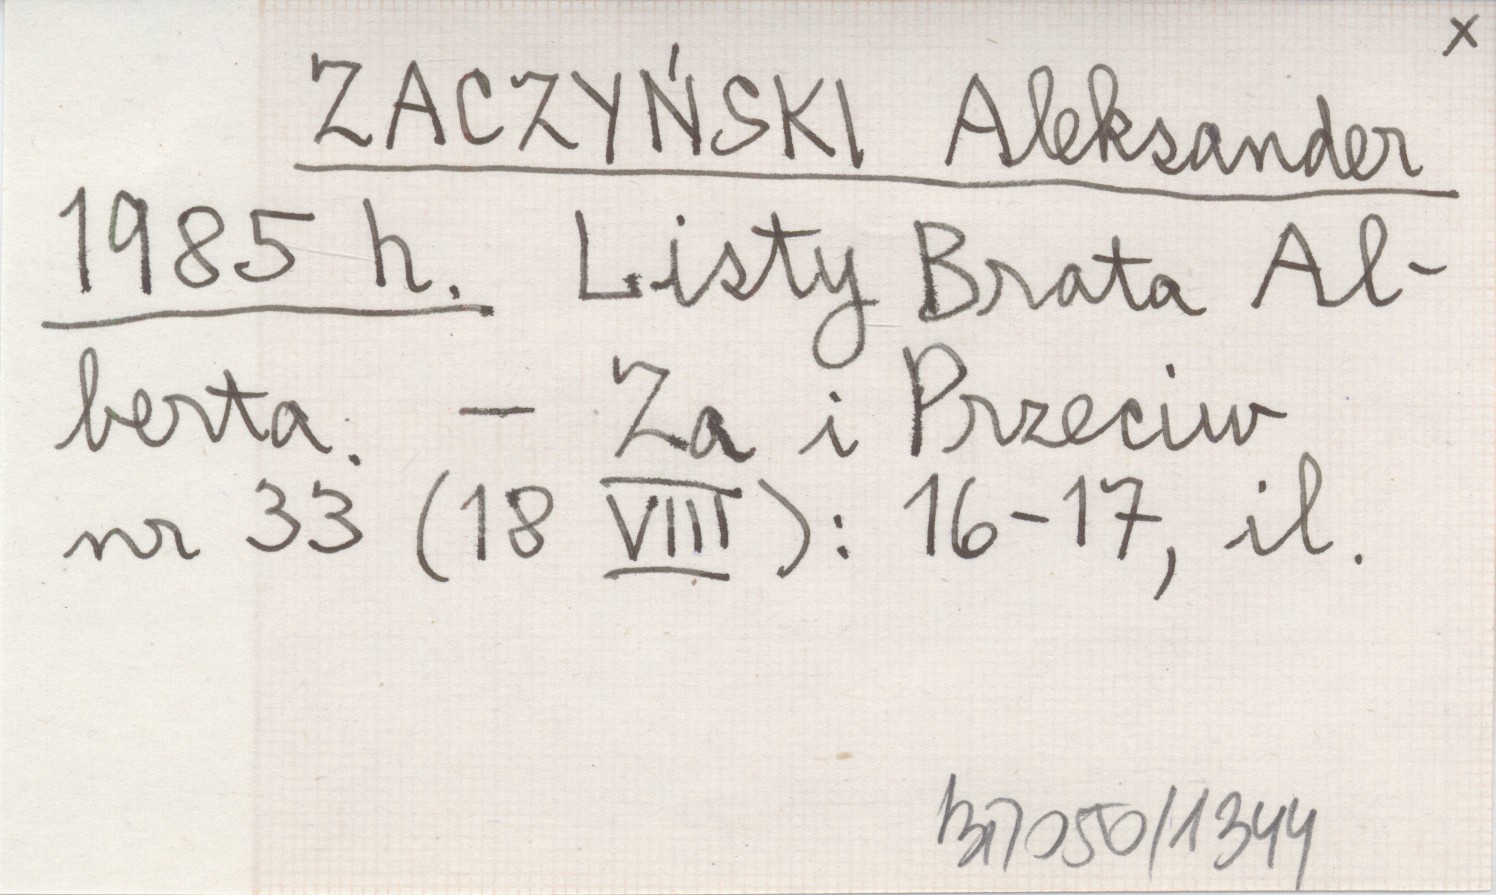 x
ZACZYŃSKI Aleksander
1985 h. Listy Brata Al-
berta. — Za i Przeciw
nr 33 (18 VIII): 16-17, il.
050/1344